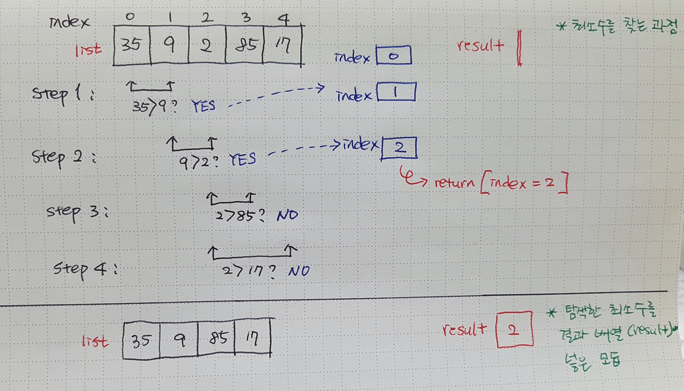 index 0 1 2 3 4
list 35 9 2 85 17
result
* 최소수를 찾는 과정
index 0
Step 1: 35>9? YES index 1
Step 2: 9>2? YES index 2
return [index = 2]
Step 3: 2>85? NO
Step 4: 2>17? NO
list 35 9 85 17
result 2
* 탐색한 최소수를
결과 배열(result)에
넣은 모습